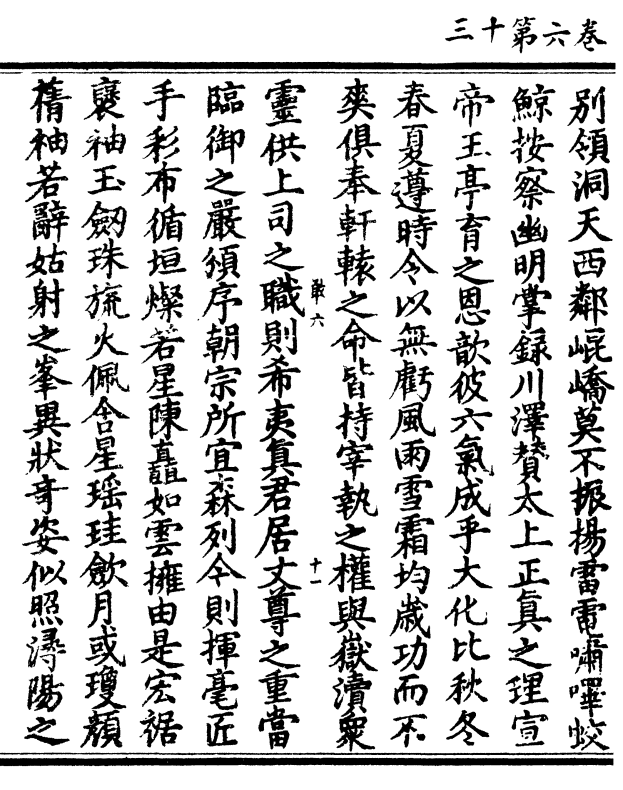 三十第六卷
別領洞天西鄰崐嶠莫不振揚雷電嘯嘷蛟
鯨按察幽明掌録川澤賛太上正眞之理宣
帝王亭育之恩歆彼六氣成乎大化比秋冬
春夏遵時令以無虧風雨雪霜均歲功而不
爽俱奉軒轅之命皆持宰執之權與嶽瀆衆
靈供上司之職則希夷眞君居丈尊之重當
敢六
十一
臨御之嚴頒序朝宗所宜森列今則揮毫匠
手彩布循垣燦若星陳矗如雲擁由是宏裾
襃袖玉劒珠旒火佩含星瑶珪歛月或瓊顏
蒨袖若辭姑射之峯異狀竒姿似照潯陽之